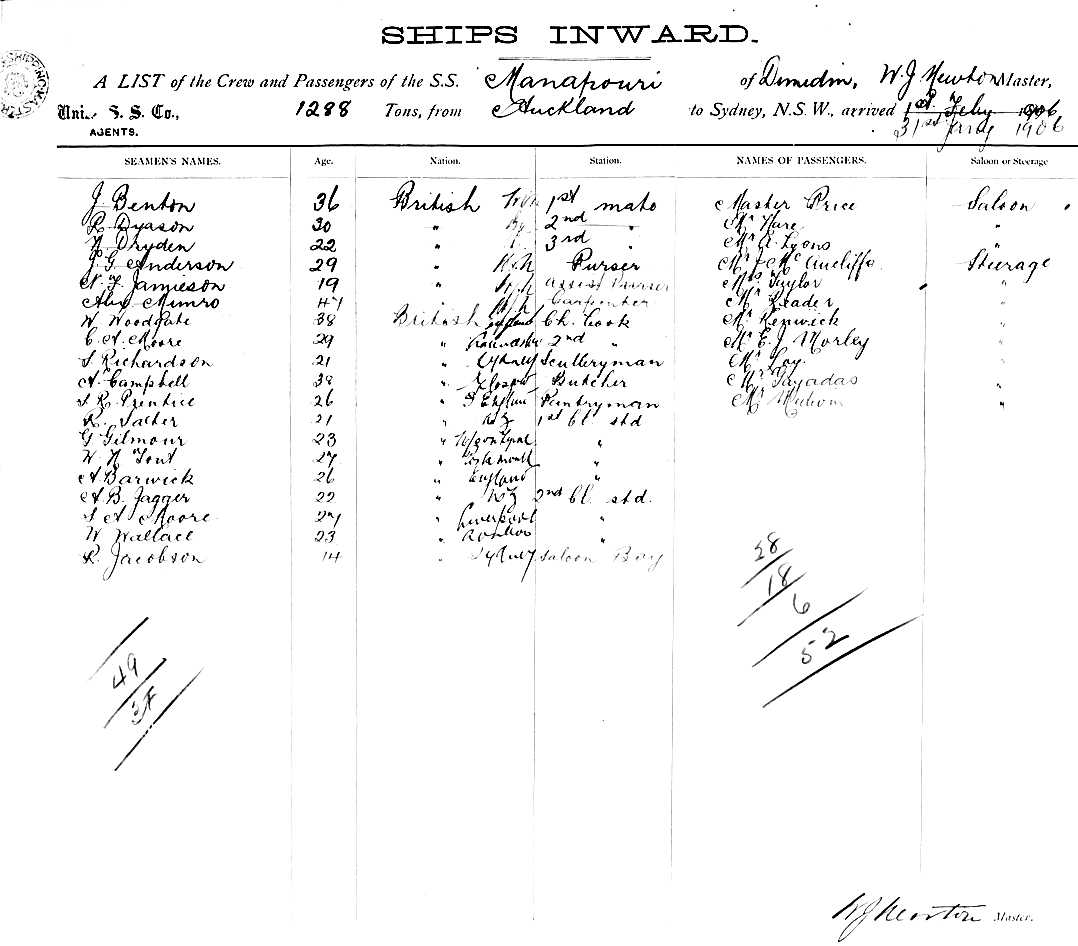 SHIPS INWARD.
A LIST of the Crew and Passengers of the S.S. Manapouri of Dunedin, W J Newton Master,
S. S. Co., 1288 Tons, from Auckland to Sydney, N.S.W., arrived 1st Feby 1906
AGENTS. 31st Jany 1906
SEAMEN'S NAMES. Age. Nation. Station. NAMES OF PASSENGERS. Saloon or Steerage
J Benton 36 British 1st mate Master Price Saloon
R Dyason 30 " 2nd " Mr Hare "
Dryden 22 " 3rd " Mr A Lyons "
J. G. Anderson 29 " Purser Mr J McAucliffe Steerage
N. J. Jamieson 19 " Assist Purser Taylor "
Alex Munro 47 Carpenter Mr Reader "
W Woodgate 38 British England Ch. Cook Mr Renwick "
C. A. Moore 29 " 2nd " Mr E. J Morley "
S Richardson 21 " Sydney Sculleryman Mr "
A. Campbell 38 " Glasgow Butcher Mr "
S R Prentice 26 " England Pantryman Mr "
R. 21 " NZ 1st Cl. std
G Gilmour 23 " "
W. H Tout 27 " "
A Barwick 26 " England "
A. B. Jagger 22 " NZ 2nd Cl. std.
S A Moore 27 " Liverpool "
W Wallace 23 " London "
R. Jacobson 14 " Sydney Saloon Boy
28
18
6
52
49
W J Newton Master.